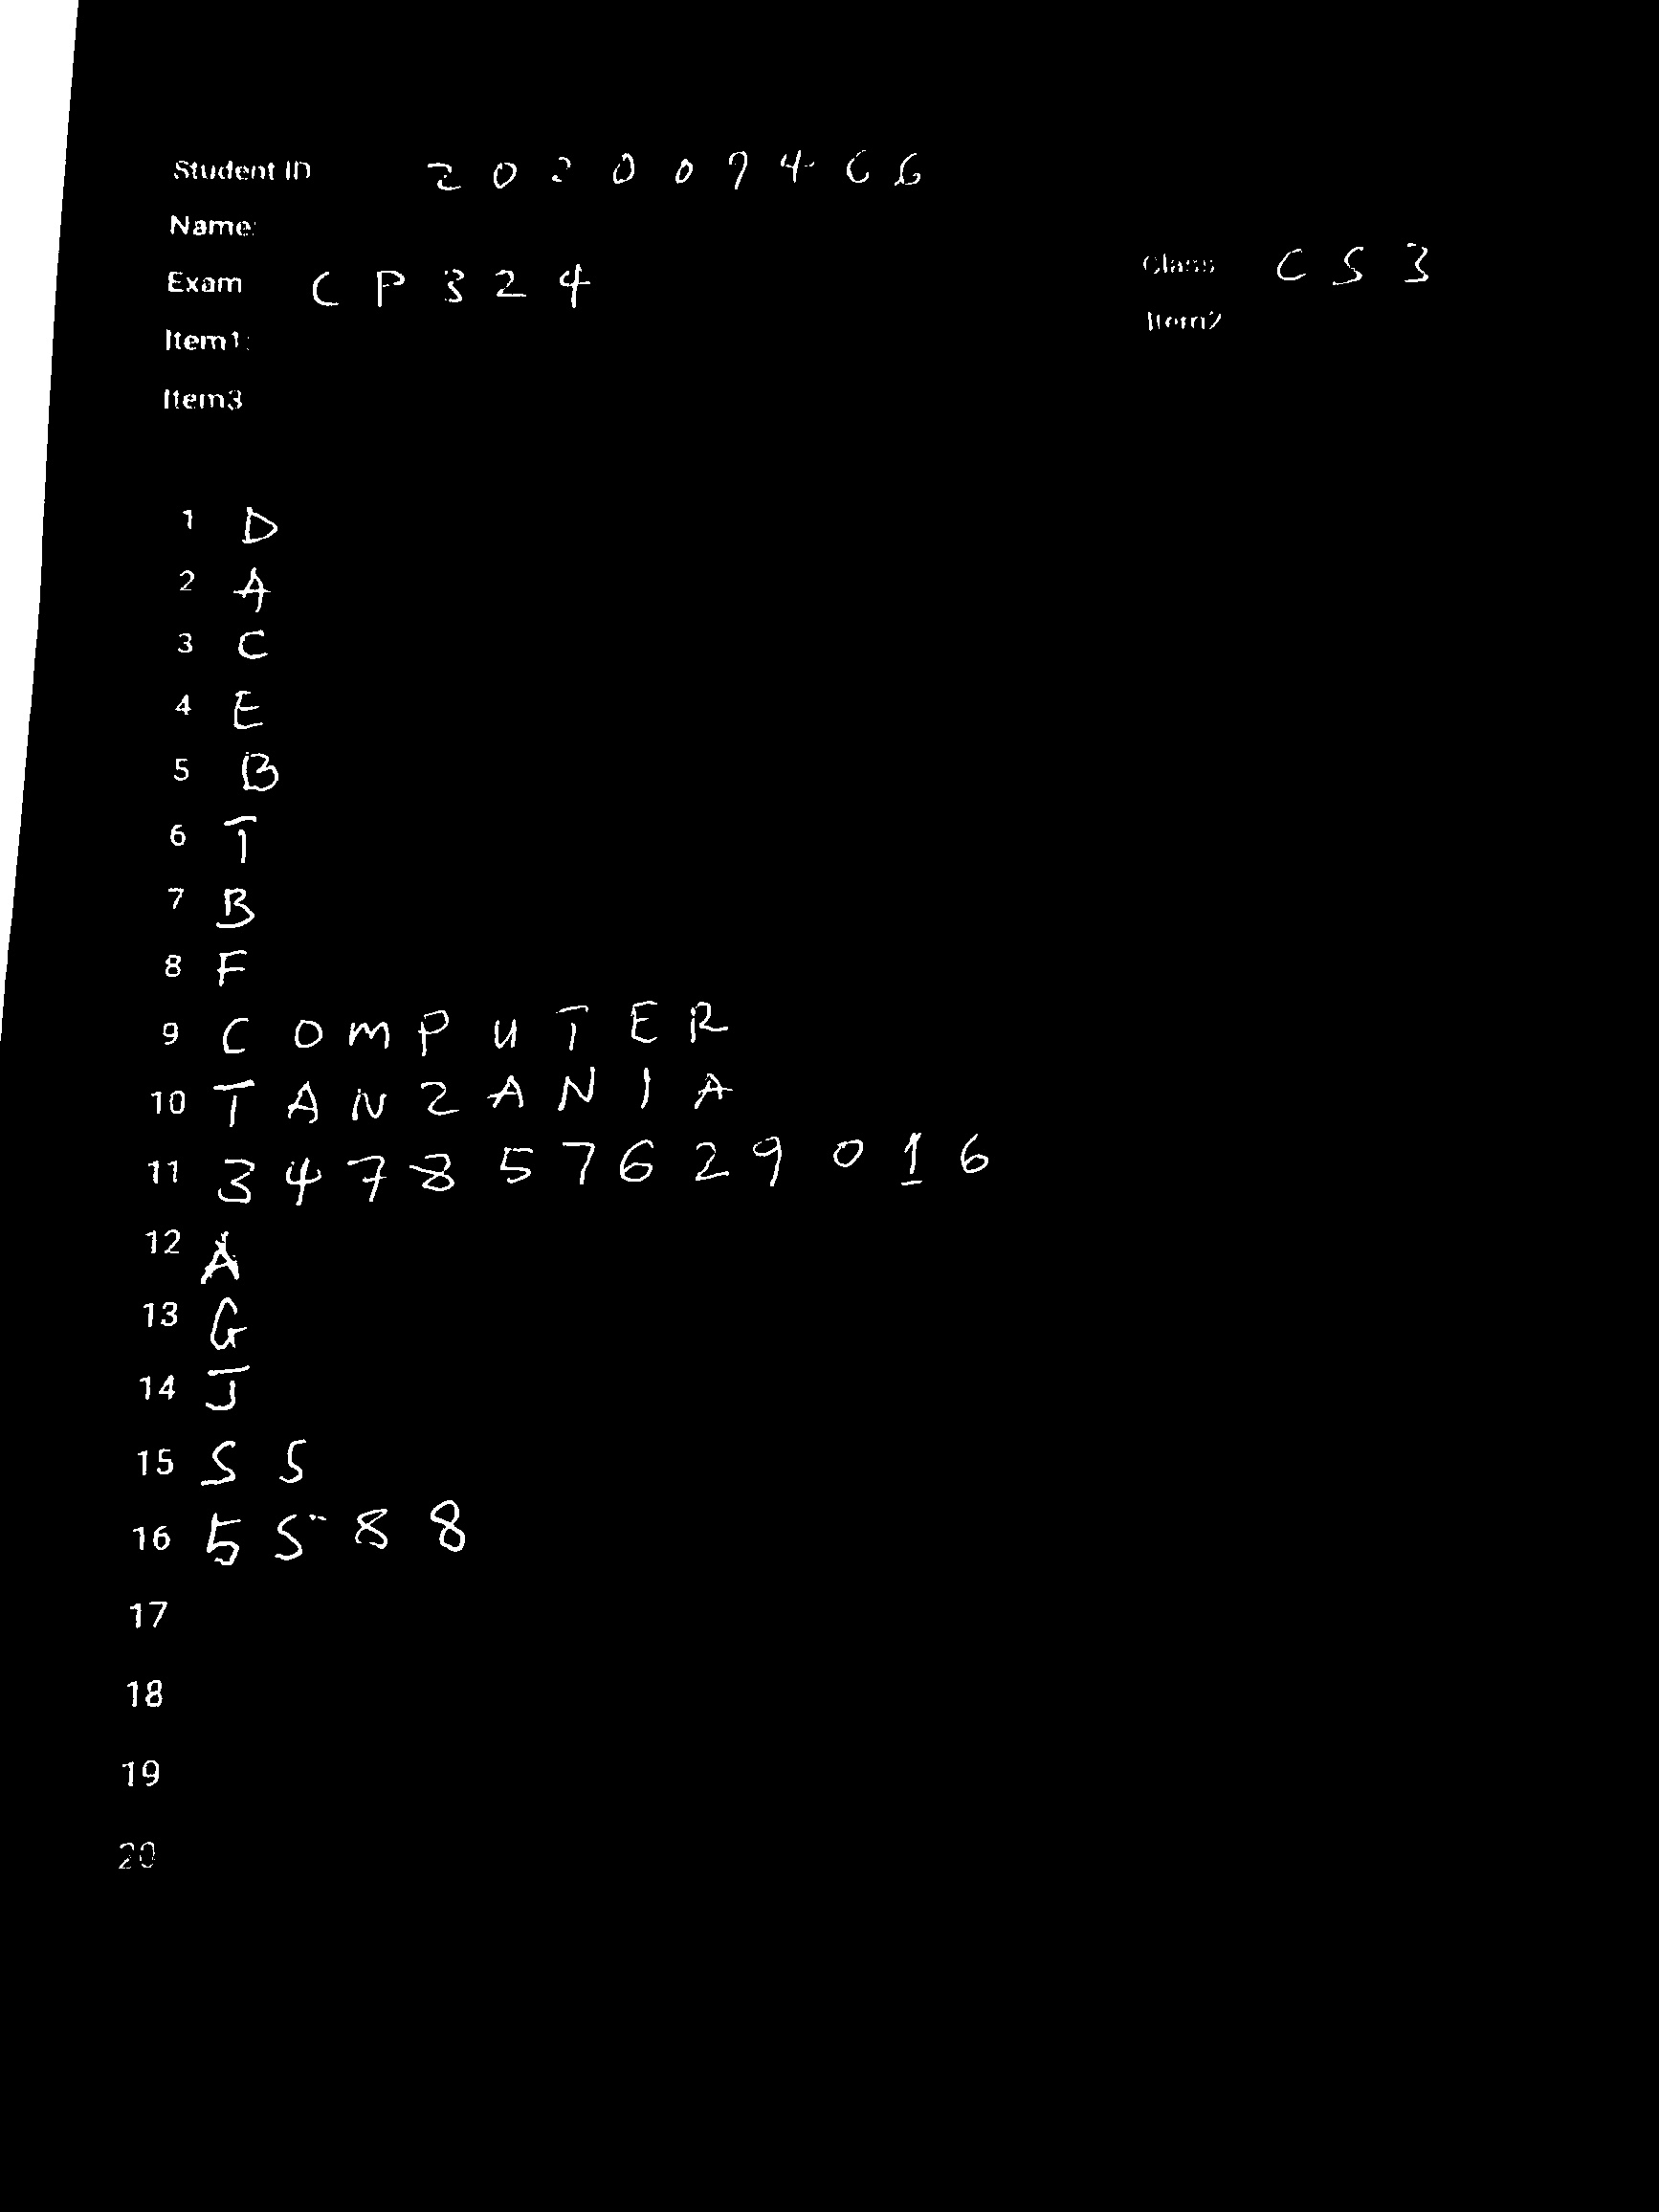 Student ID 2 0 2 0 0 9 4 6 6
Name:
Exam C P 3 2 4 Class C S 3
Item1: Item2
Item3
1 D
2 A
3 C
4 E
5 B
6 T
7 B
8 F
9 C O M P U T E R
10 T A N Z A N I A
11 3 4 7 8 5 7 6 2 9 0 1 6
12 A
13 G
14 J
15 S S
16 5 5 8 8
17
18
19
20